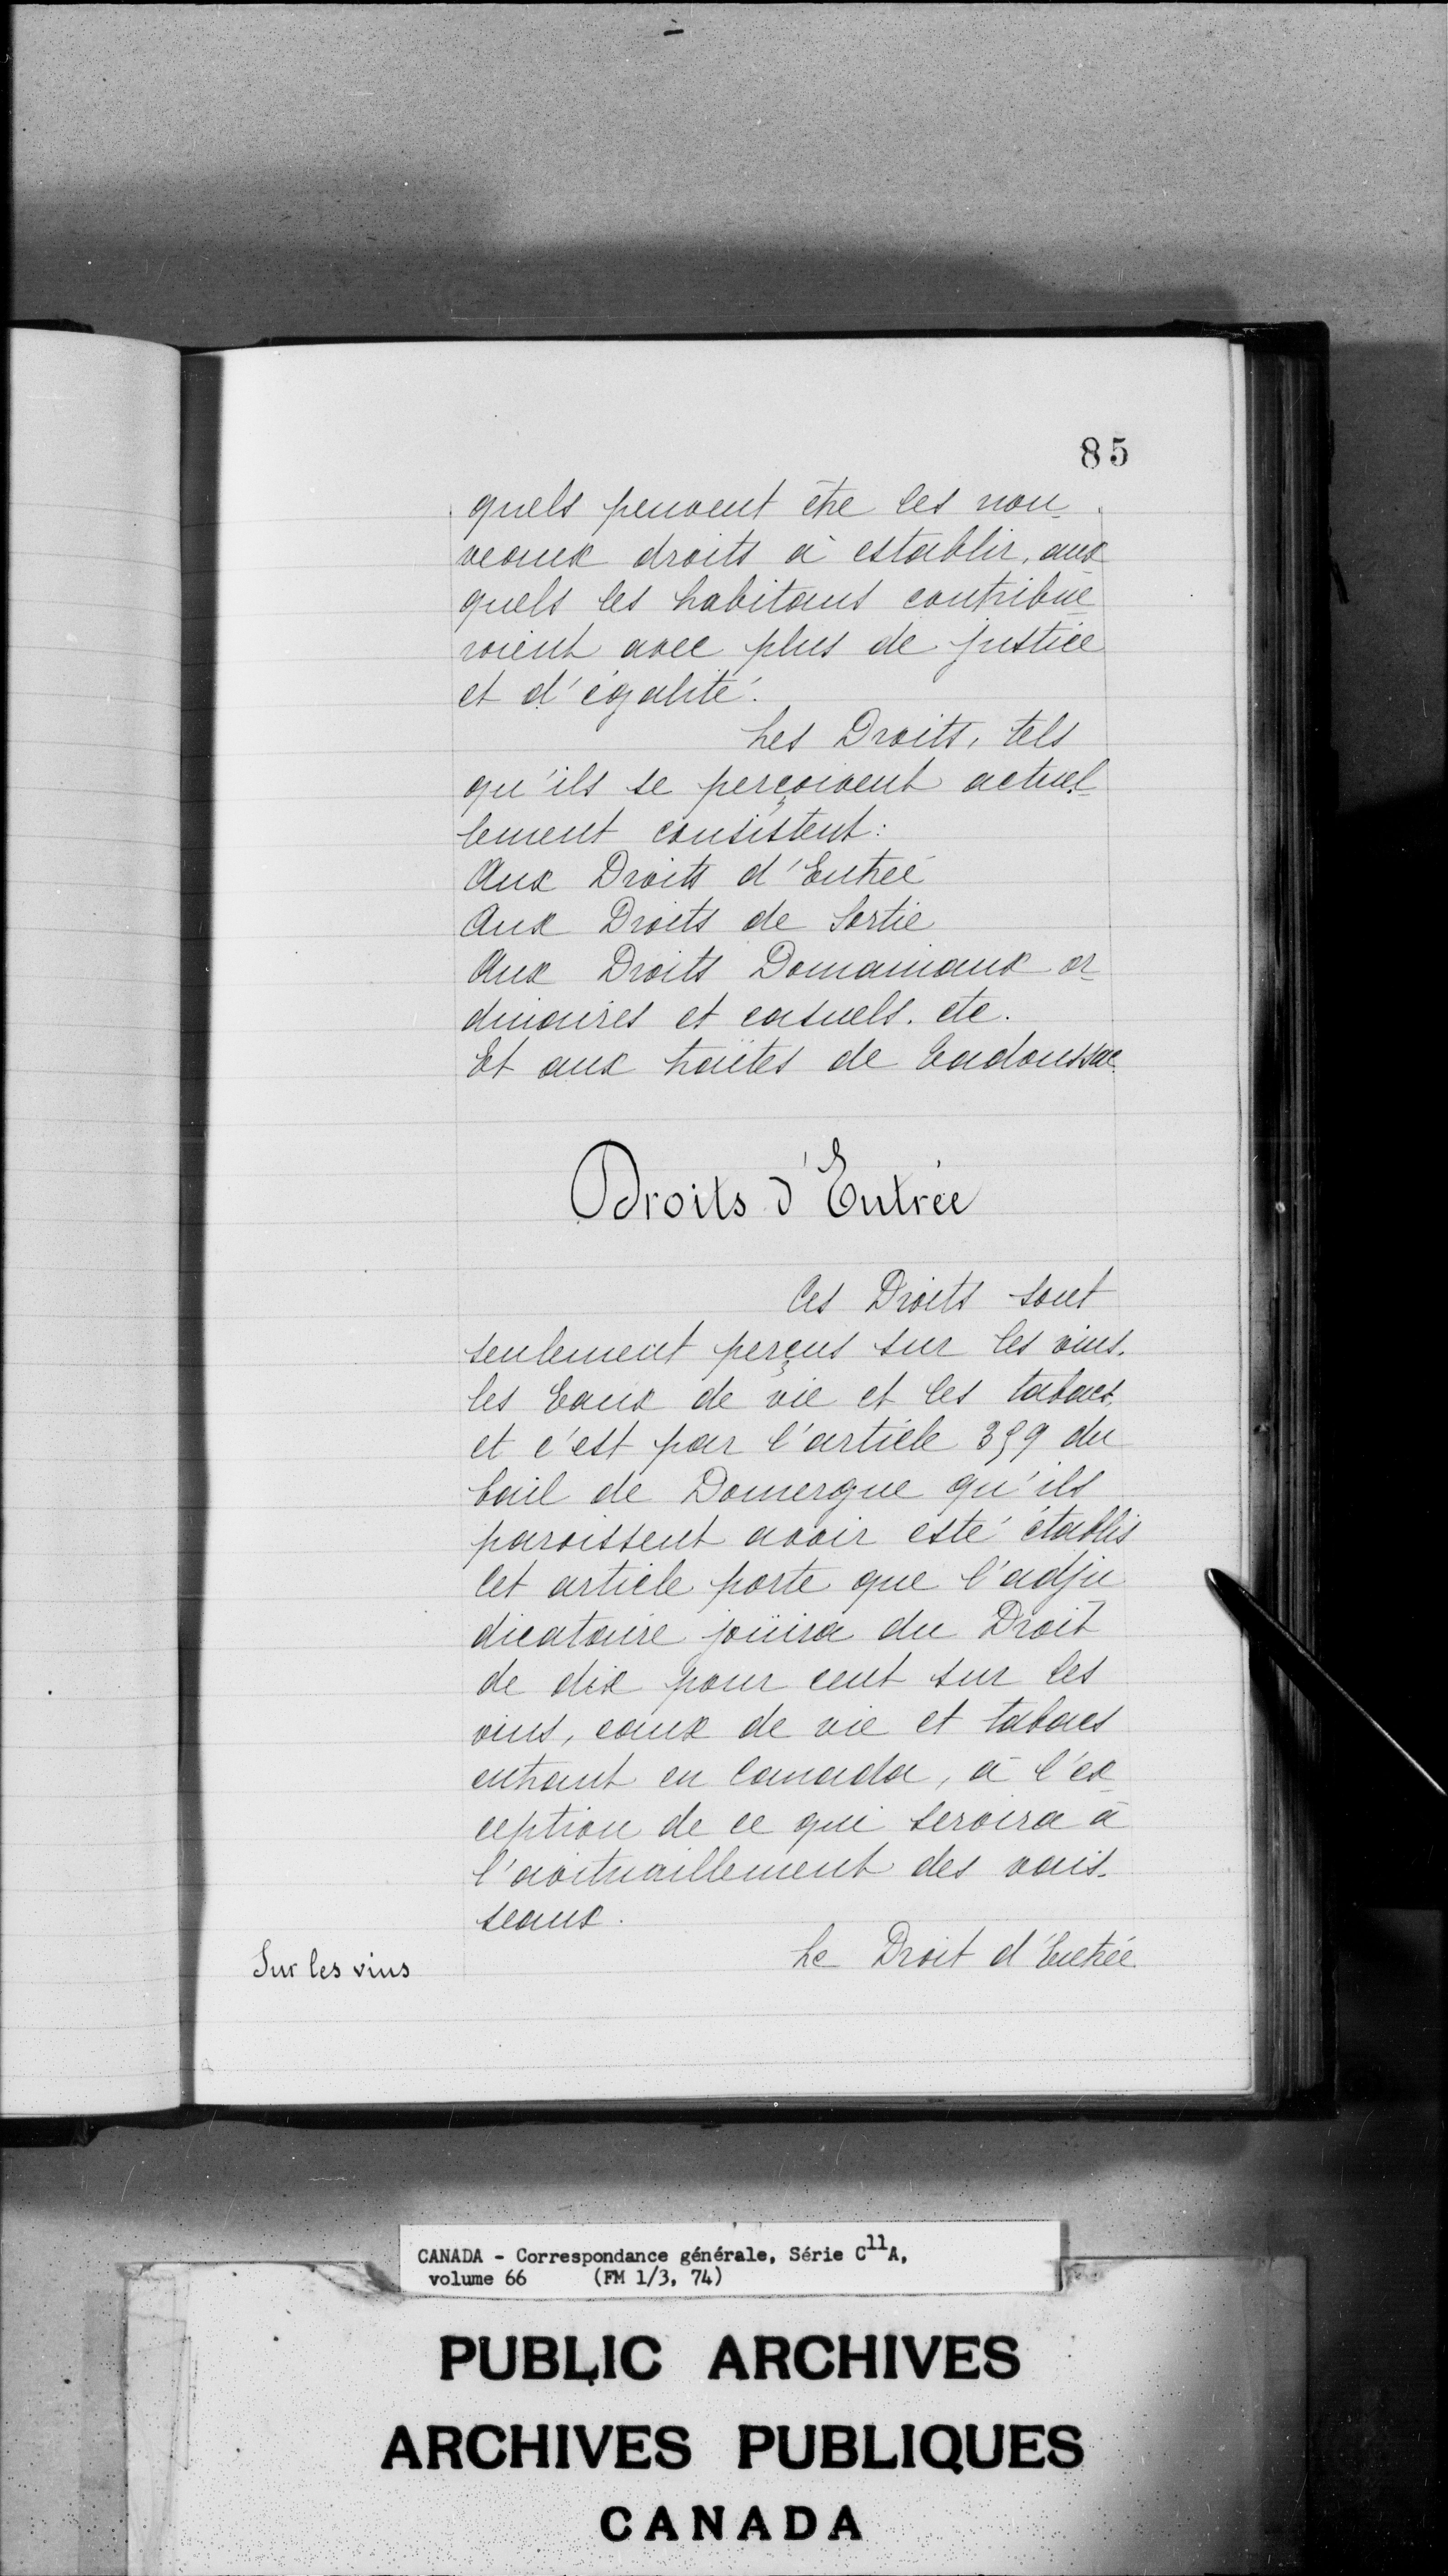 85
quels peuvent être les nou-
veaux droits à establir, aux
quels les habitans contribue-
roient avec plus de justice
et d'égalité.
Les Droits, tels
qu'ils se perçoivent actuel-
lement consistent:
Aux Droits d'Entrée
Aux Droits de Sortie
Aux Droits Domaniaux or-
dinaires et casuels. etc.
Et aux traites de Tadoussac.
Droits d'Entrée
Ces Droits sont
seulement perçus sur les vins.
les Eaux de vie et les tabacs,
et c'est par l'article 359 du
bail de Domergue qu'ils
paroissent avoir esté établis
Cet article porte que l'adju
dicataire joüira du Droit
de dix pour cent sur les
vins, eaux de vie et tabacs
entrant en Canada, à l'ex-
ception de ce qui servira à
l'avituaillement des vais-
seaux.
Sur les vins
Le Droit d'Entrée
CANADA - Correspondance générale, Série C11A,
volume 66 (FM 1/3, 74)
PUBLIC ARCHIVES
ARCHIVES PUBLIQUES
CANADA